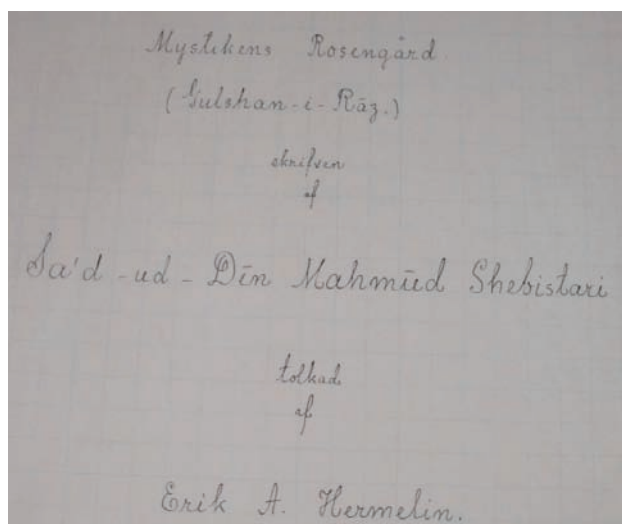 Mystikens Rosengård.
(Gulshan-i-Rāz.)
skrifven
af
Sa'd-ud-Dīn Mahmūd Shebistari
tolkad
af
Erik A. Hermelin.